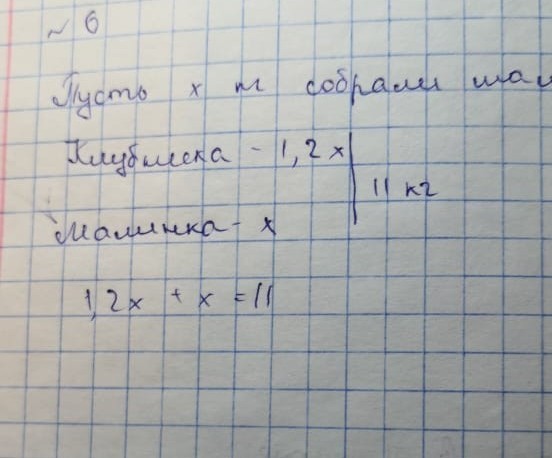 ~ 6
Пусть x т собрали мал
Клубника - 1,2 x
11 кг
Малинка - x
1,2x + x = 11